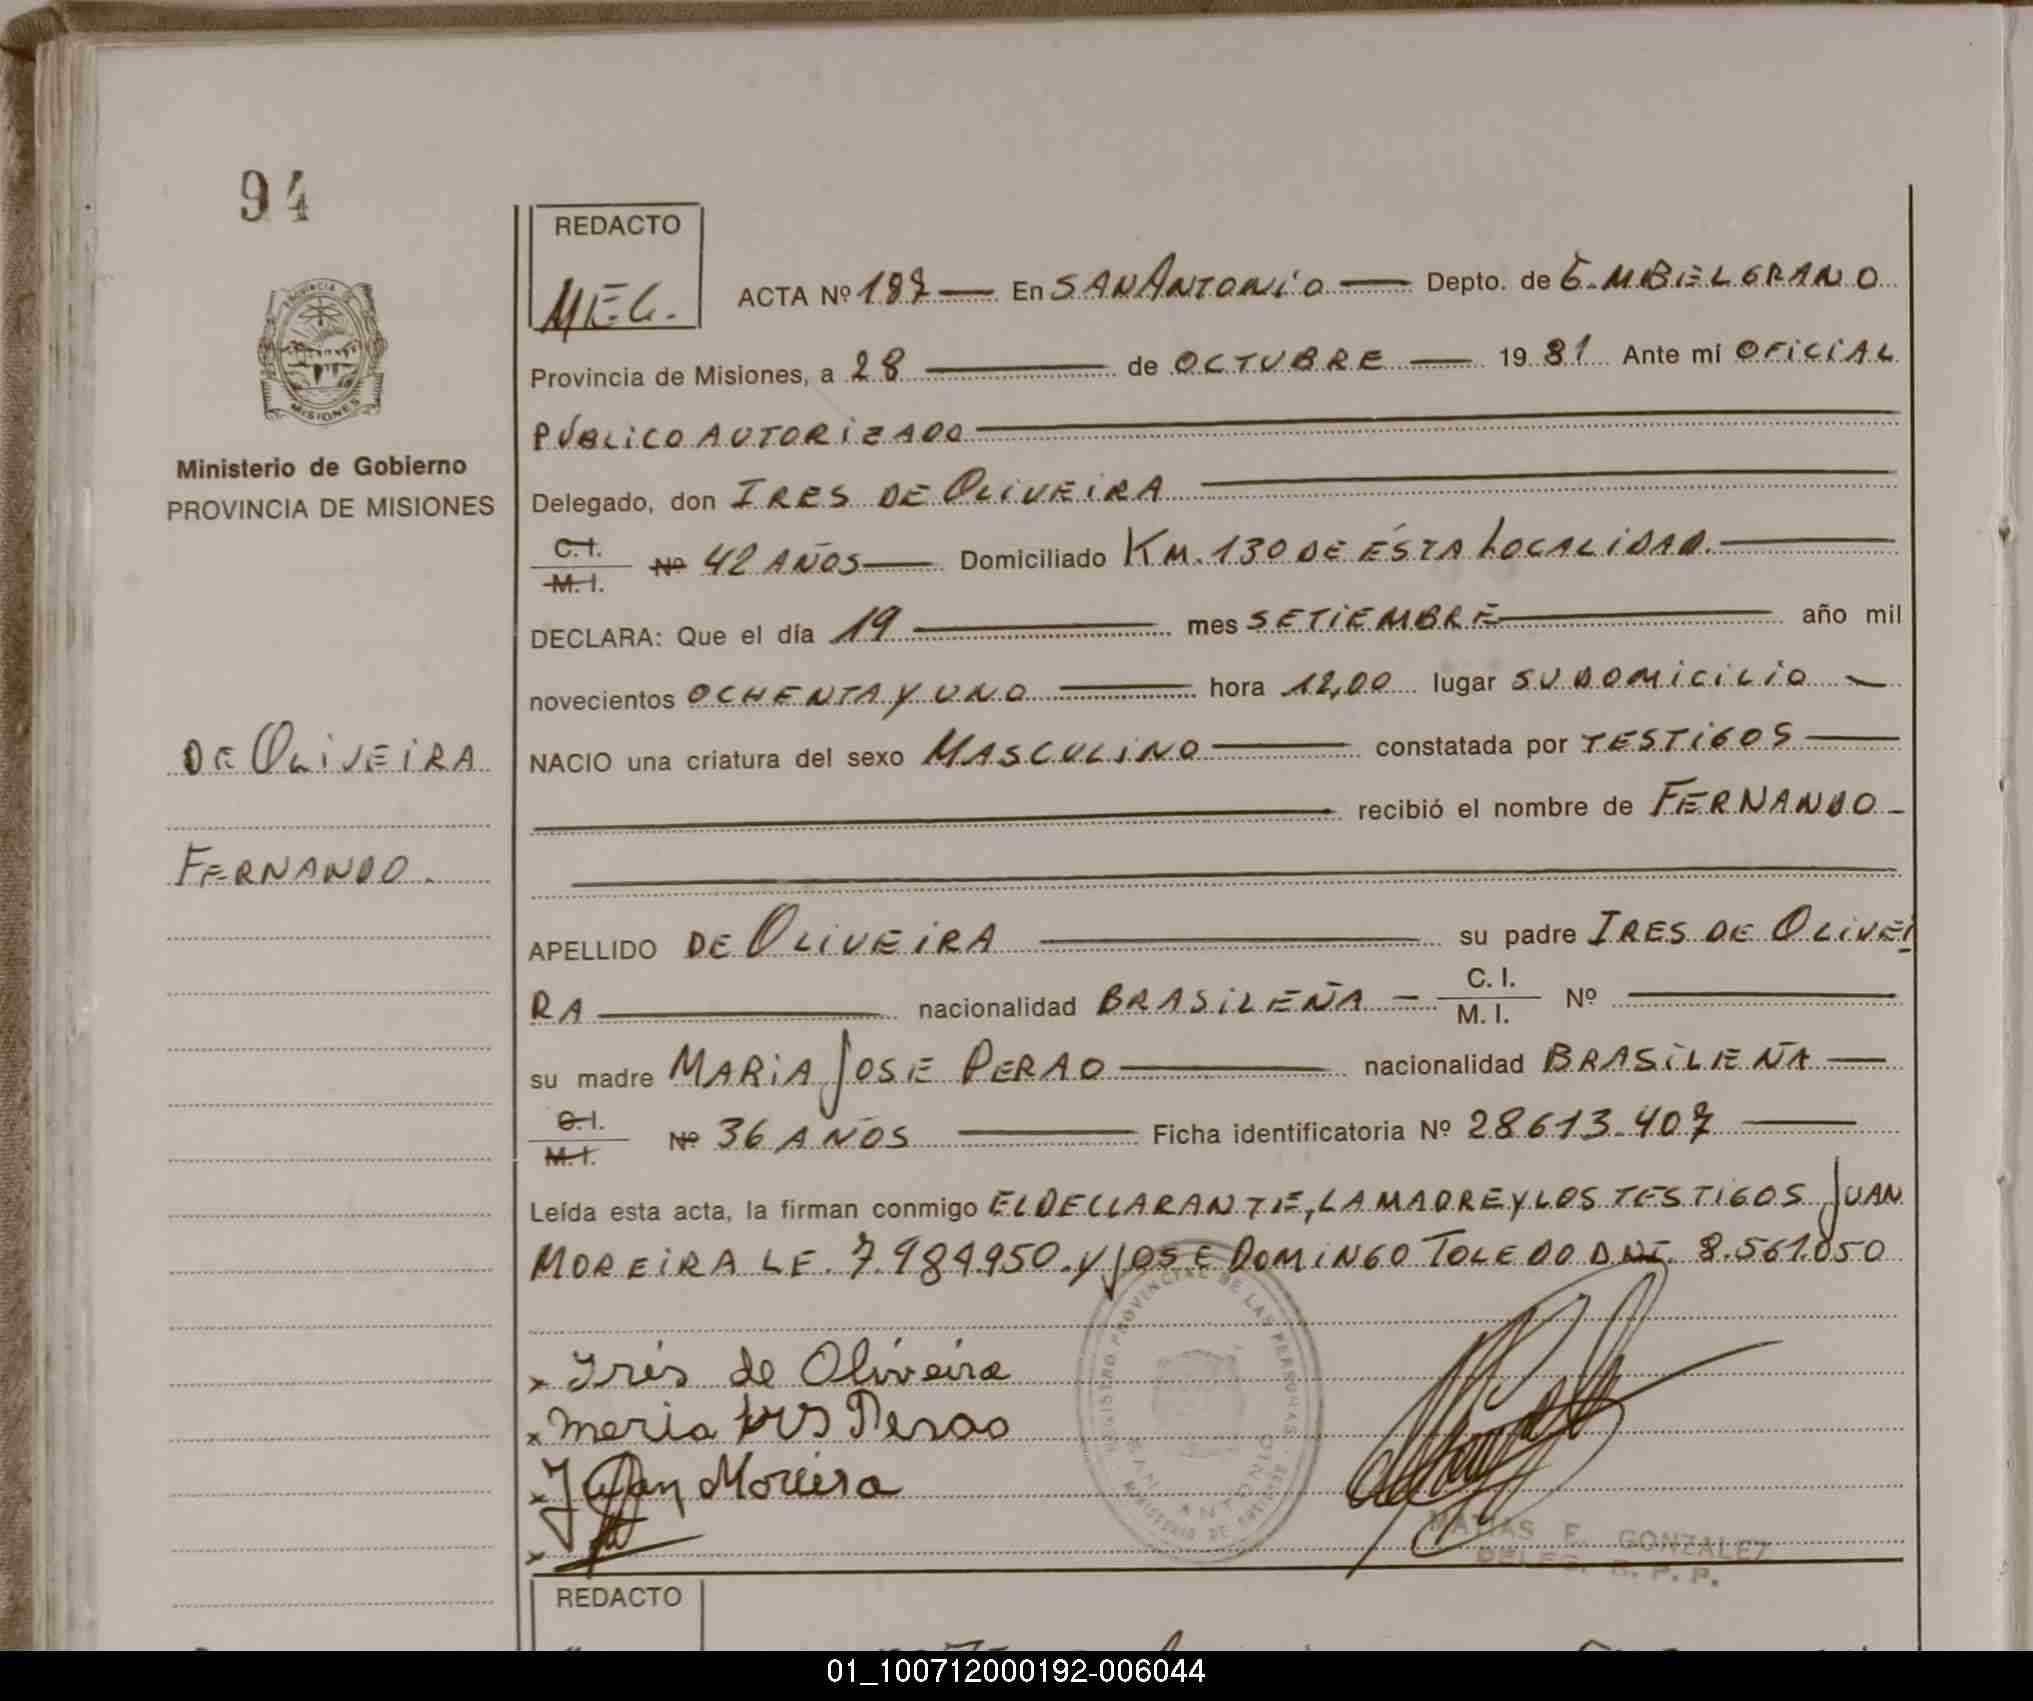 94
REDACTO
MEG.
ACTA Nº 187 En SAN ANTONIO Depto. de G. M BELGRANO
Provincia de Misiones, a 28 de OCTUBRE 1981 Ante mí OFICIAL
PÚBLICO AUTORIZADO
Ministerio de Gobierno
PROVINCIA DE MISIONES
Delegado, don IRES DE OLIVEIRA
C. I.
M. I.
Nº 42 AÑOS Domiciliado KM. 130 DE ÉSTA LOCALIDAD.
DECLARA: Que el día 19 mes SETIEMBRE año mil
novecientos OCHENTA Y UNO hora 12,00 lugar SU DOMICILIO
DE OLIVEIRA
NACIO una criatura del sexo MASCULINO constatada por TESTIGOS
recibió el nombre de FERNANDO
FERNANDO.
APELLIDO DE OLIVEIRA su padre IRES DE OLIVEI
RA nacionalidad BRASILEÑA C. I.
M. I. Nº
su madre MARIA JOSE PERAO nacionalidad BRASILEÑA
C. I.
M. I.
Nº 36 AÑOS Ficha identificatoria Nº 28613.407
Leída esta acta, la firman conmigo EL DECLARANTE, LA MADRE Y LOS TESTIGOS JUAN
MOREIRA LE. 7.984.950. Y JOSE DOMINGO TOLEDO DNI. 8.561.050
REGISTRO PROVINCIAL DE LAS PERSONAS
SAN ANTONIO
MINISTERIO DE GOBIERNO
x Irês de Oliveira
x Maria Peroo
x Juan Moreira
x
MATIAS E. GONZALEZ
DELEG. R. P. P.
REDACTO
01_100712000192-006044